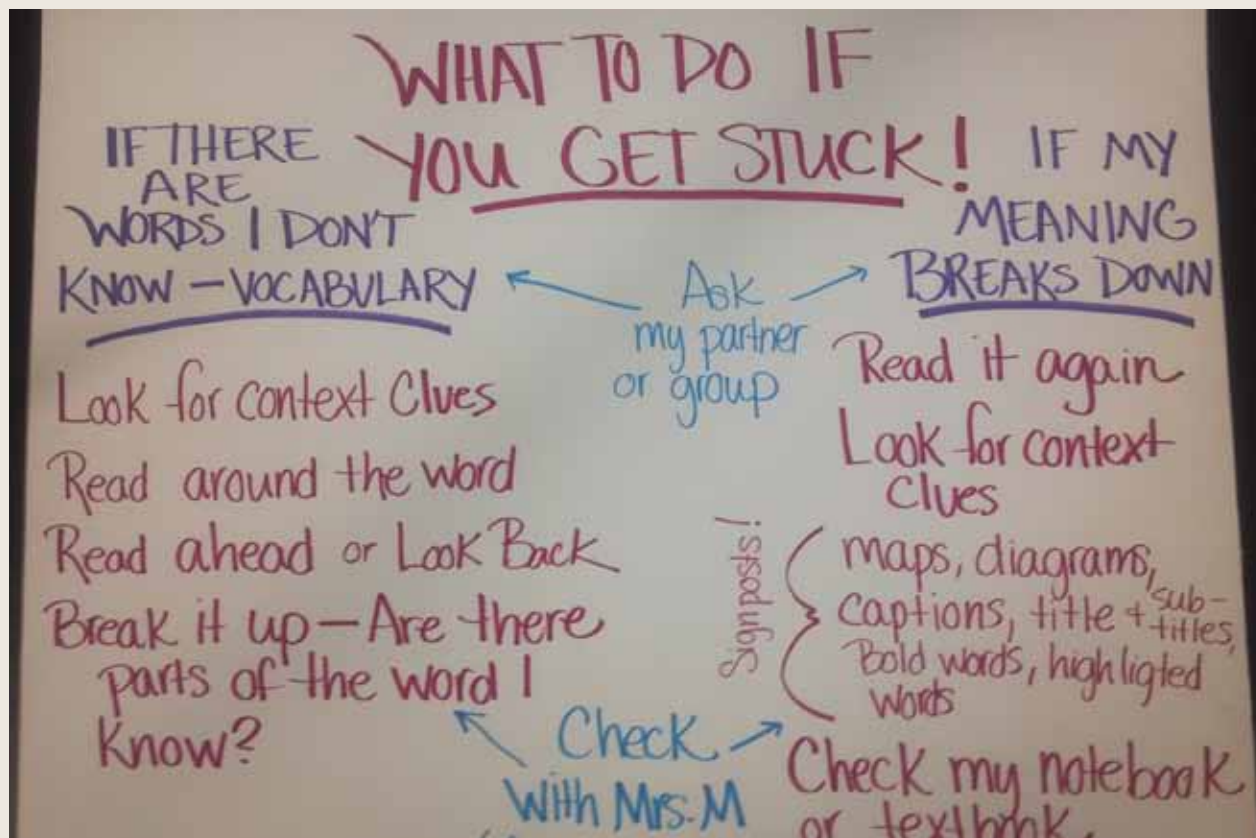 WHAT TO DO IF
YOU GET STUCK!
IF THERE
ARE
WORDS I DON'T
KNOW – VOCABULARY
Look for context Clues
Read around the word
Read ahead or Look Back
Break it up – Are there
parts of the word I
Know?
Ask
my partner
or group
Check
With Mrs. M
IF MY
MEANING
BREAKS DOWN
Read it again
Look for context
Clues
Signposts!
maps, diagrams,
captions, title + sub-
titles,
Bold words, highligted
words
Check my notebook
or textbook.